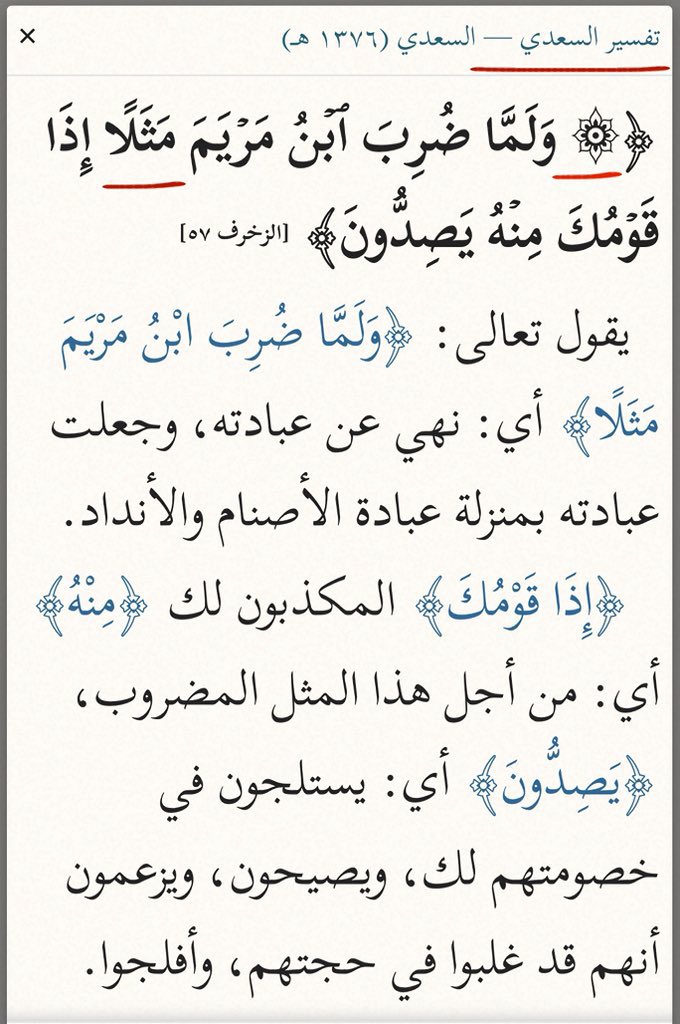 تفسير السعدي — السعدي (١٣٧٦ هـ) ×
﴿۞ وَلَمَّا ضُرِبَ ٱبۡنُ مَرۡيَمَ مَثَلًا إِذَا
قَوۡمُكَ مِنۡهُ يَصِدُّونَ﴾ [الزخرف ٥٧]
يقول تعالى: ﴿وَلَمَّا ضُرِبَ ابْنُ مَرْيَمَ
مَثَلًا﴾ أي: نهي عن عبادته، وجعلت
عبادته بمنزلة عبادة الأصنام والأنداد.
﴿إِذَا قَوْمُكَ﴾ المكذبون لك ﴿مِنْهُ﴾
أي: من أجل هذا المثل المضروب،
﴿يَصِدُّونَ﴾ أي: يستلجون في
خصومتهم لك، ويصيحون، ويزعمون
أنهم قد غلبوا في حجتهم، وأفلجوا.